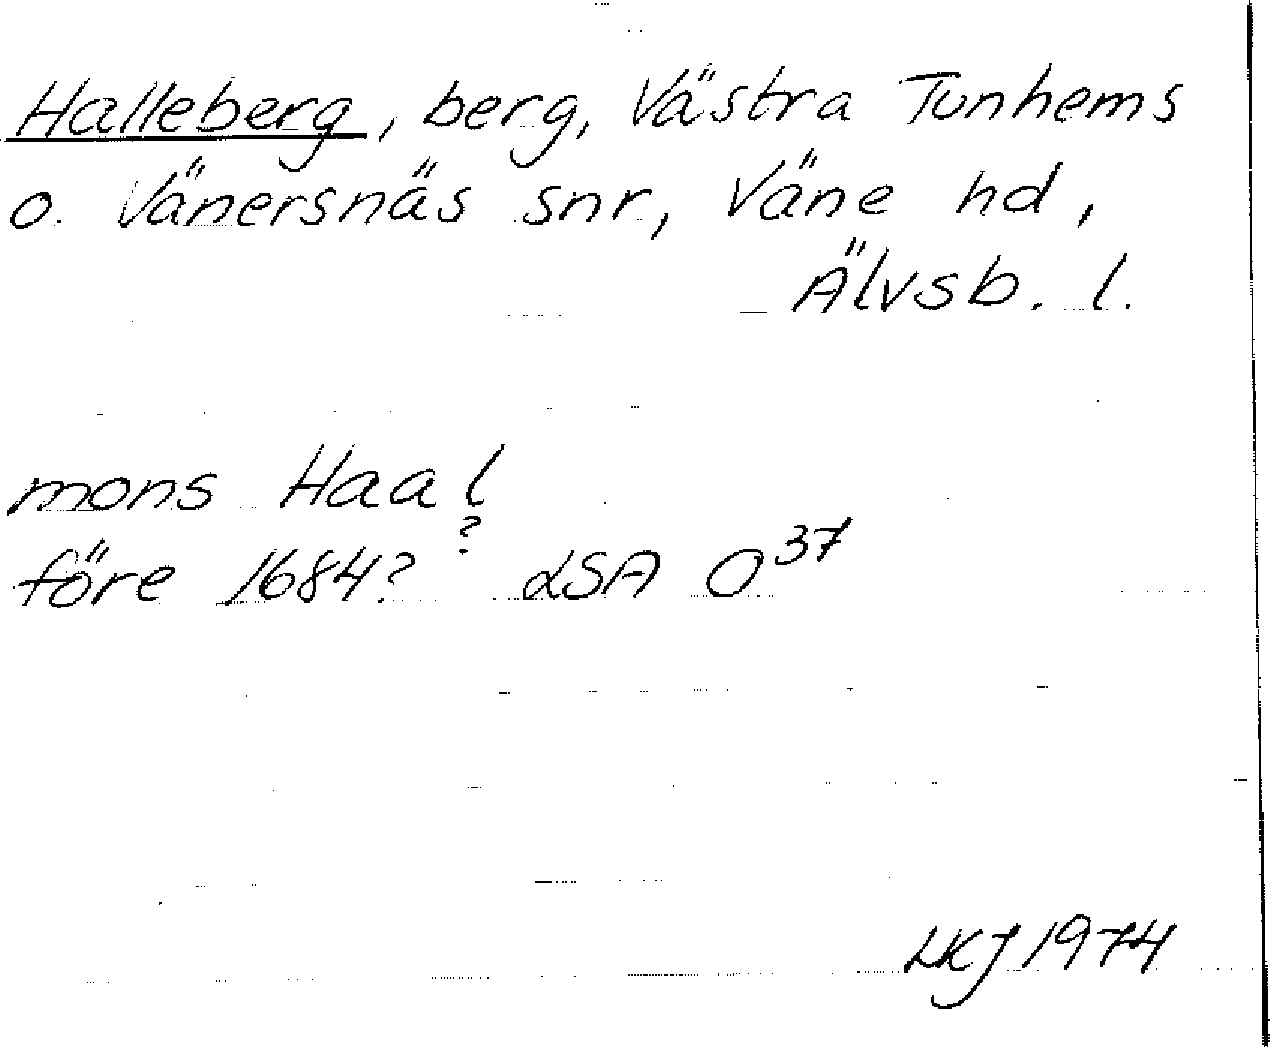 Halleberg, berg, Västra Tunhems
o. Vänersnäs snr, Väne hd,
Älvsb. l.
mons Haal
?
före 1684? LSA O 37
LKJ 1974